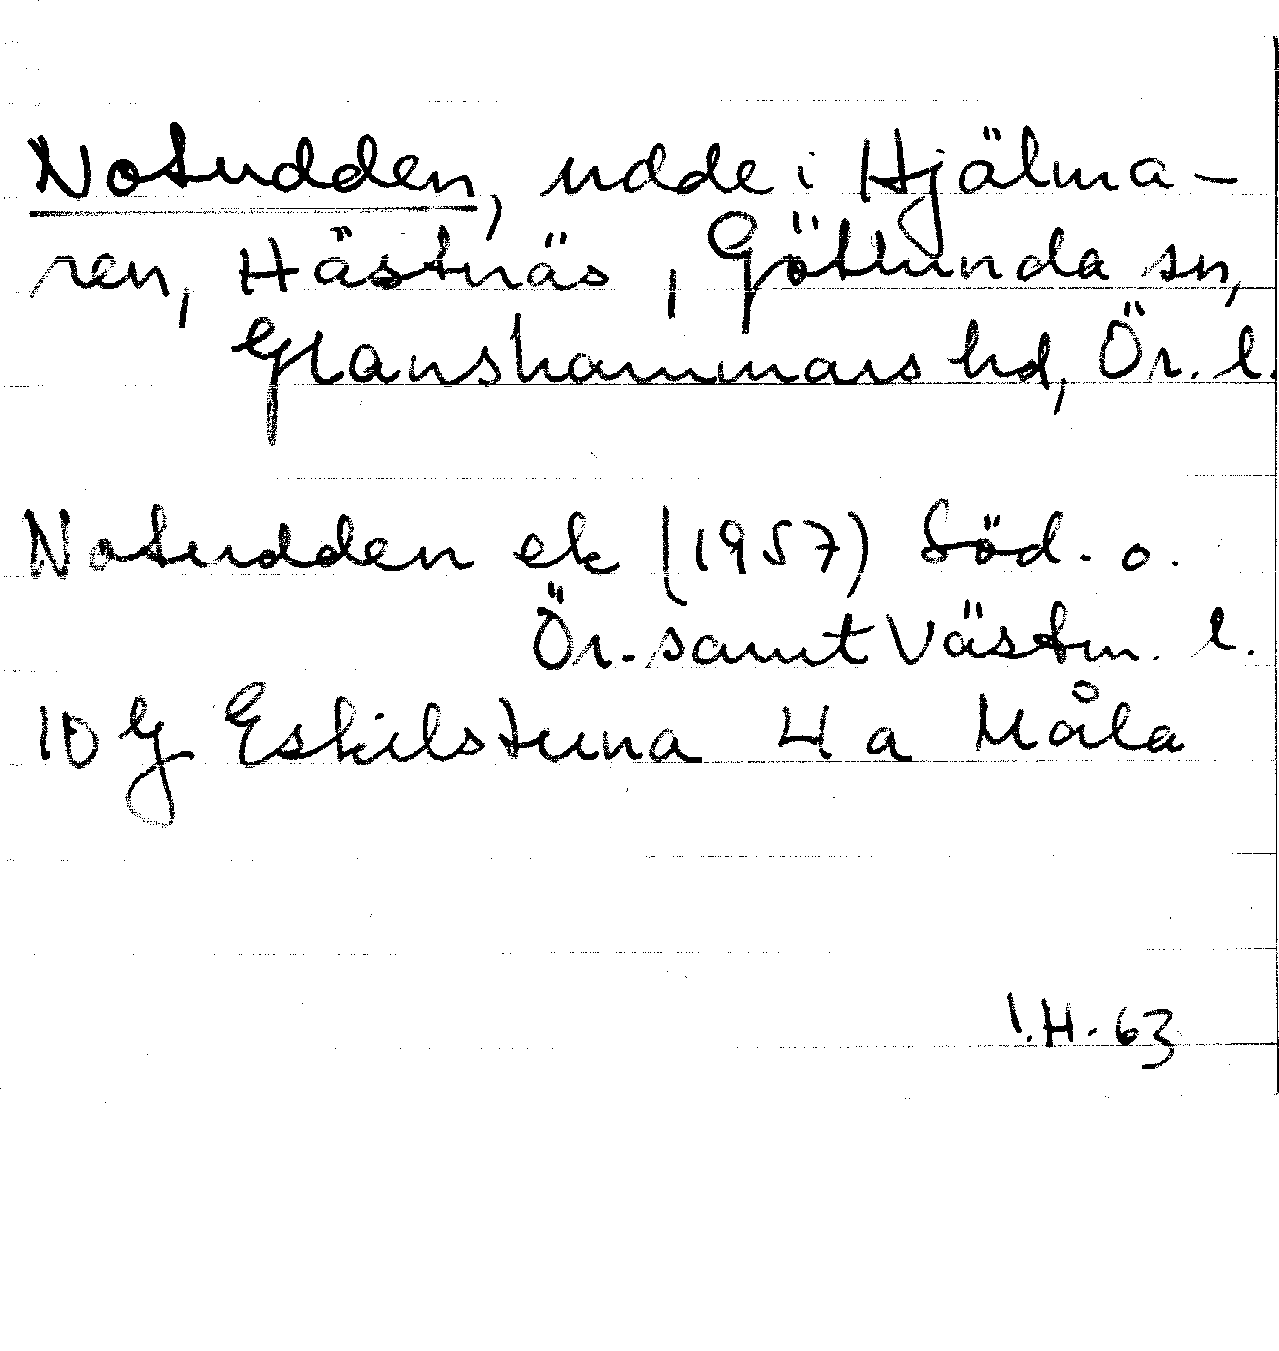 Notudden, udde i Hjälma-
ren, Hästnäs, Götlunda sn,
Glanshammars hd, Ör. l.
Notudden ek (1957) Söd. o.
Ör. samt Västm. l.
10 G Eskilstuna 4 a Måla
I.H. 63